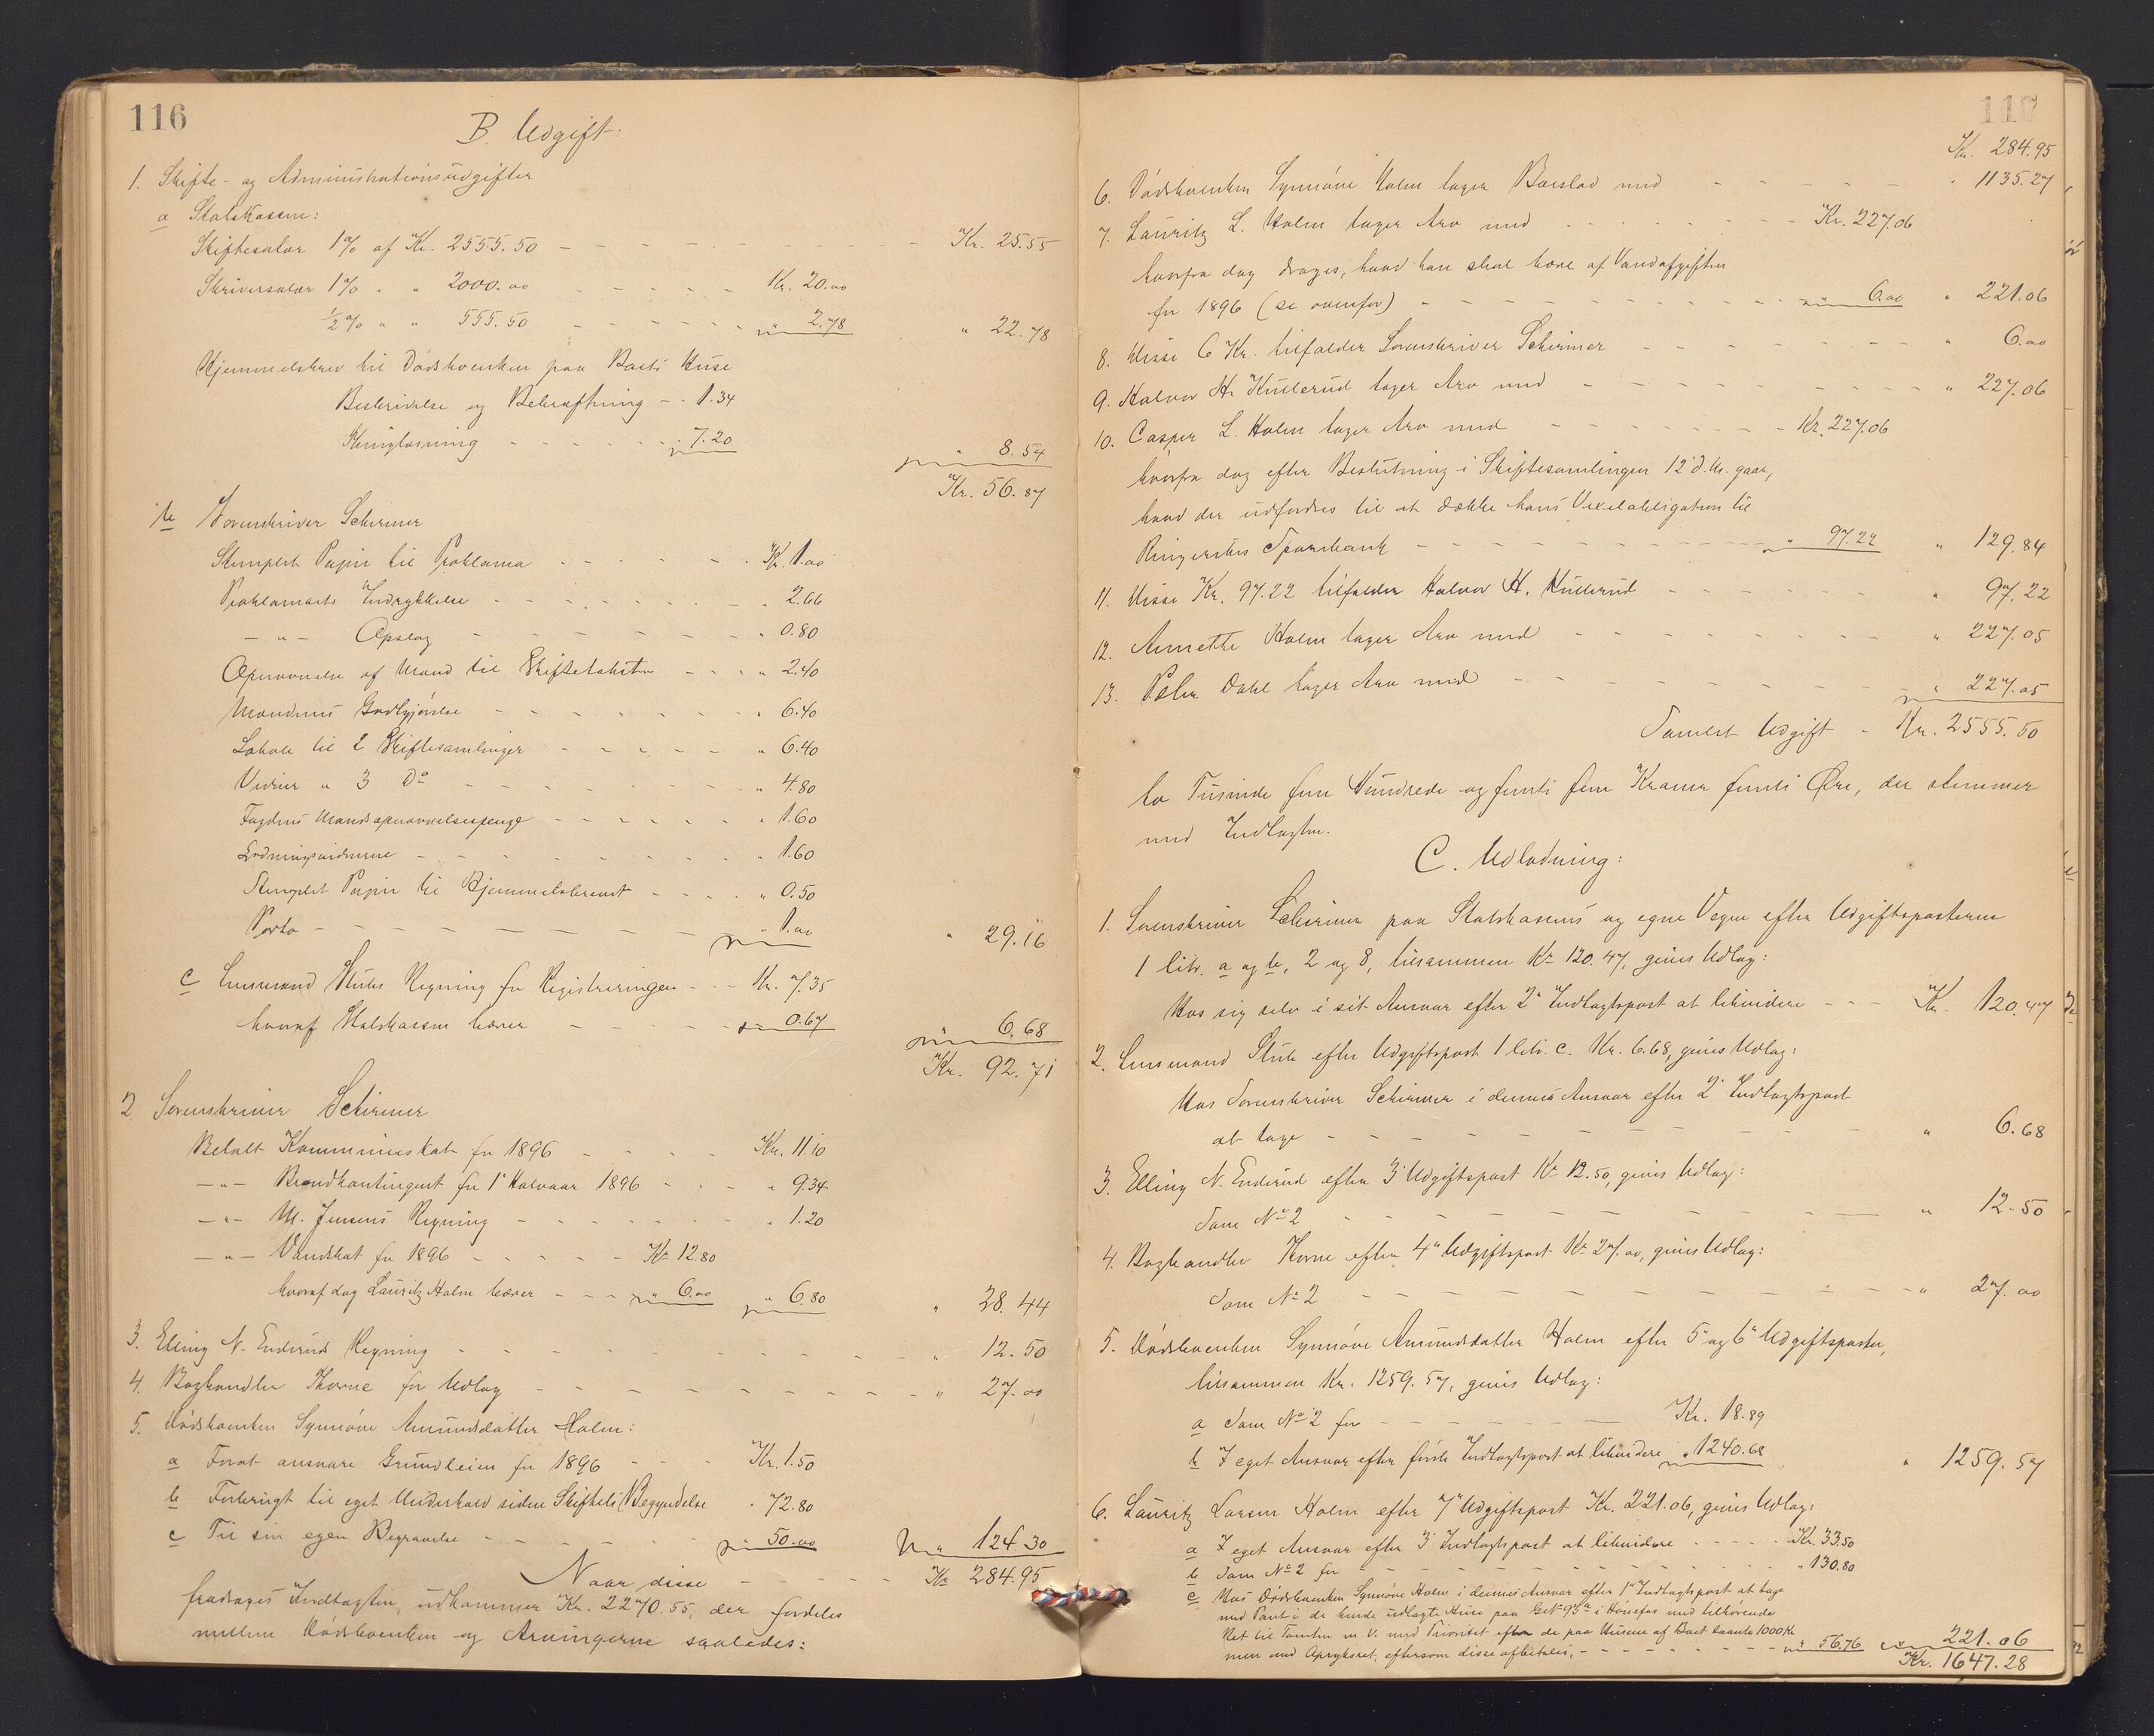 116
B. Udgift:
1. Skifte- og Administrationsudgifter
a Statskassen:
Skiftesalær 1% af Kr. 2555.50 - - - Kr. 25.55
Skriversalær 1% " " 2000.00 - - - Kr. 20.00
½% " " 555.50 - - - " 2.78 " 22.78
Hjemmelsbrev til Dødsboenken paa Boets Huse
Beskrivelse og Bekræftning - " 1.34
Thinglæsning - - - " 7.20 " 8.54
Kr. 56.87
b Sorenskriver Schirmer
Stemplet Papir til Proklama - - - Kr. 1.00
Proklamaets Indrykkelse - - - " 2.66
- " - Opslag - - - " 0.80
Opnævnelse af Mænd til Skiftetaksten - - - " 2.40
Mændenes Godtgjørelse - - - " 6.40
Lokale til 2 Skiftesamlinger - - - " 6.40
Vidner " 3 Do - - - " 4.80
Fogdens Mandsopnævnelsespenge - - - " 1.60
Lodningsvidnerne - - - " 1.60
Stemplet Papir til Hjemmelsbrevet - - - " 0.50
Porto - - - " 1.00 " 29.16
c Lensmand Stubs Regning for Registreringen - - - Kr. 7.35
hvoraf Statskassen bærer - - - " 0.67 " 6.68
Kr. 92.71
2 Sorenskriver Schirmer
Betalt Kommuneskat for 1896 - - - Kr. 11.10
- " - Brandkontingent for 1' Halvaar 1896 - - - " 9.34
- " - M. Jensens Regning - - - " 1.20
- " - Vandskat for 1896 - - - Kr. 12.80
hvoraf dog Lauritz Holm bærer - - - " 6.00 " 6.80 " 28.44
3. Elling N. Enderuds Regning - - - " 12.50
4. Boghandler Thorne for Udlæg - - - " 27.00
5. Dødsboenken Synnøve Amundsdatter Holm:
a For at ansvare Grundleien for 1896 - - - Kr. 1.50
b Forbrugt til eget Underhold siden Skiftets Begyndelse " 72.80
c Til sin egen Begravelse - - - " 50.00 " 124.30
Naar disse - - - Kr. 284.95
fradrages Indtægten, udkommer Kr. 2270.55, der fordeles
mellem Dødsboenken og Arvingerne saaledes:
117
Kr. 284.95
6. Dødsboenken Synnøve Holm tager Boeslod med - - - " 1135.27
7. Lauritz L. Holm tager Arv med - - - Kr. 227.06
hvorfra dog drages, hvad han skal bære af Vandafgiften
for 1896 (se ovenfor) - - - " 6.00 " 221.06
8. Disse 6 Kr. tilfalder Sorenskriver Schirmer - - - " 6.00
9. Halvor H. Hullerud tager Arv med - - - " 227.06
10. Casper L. Holm tager Arv med - - - Kr. 227.06
hvorfra dog efter Beslutning i Skiftesamlingen 12' d.M. gaar,
hvad der udfordres til at dække hans Vexelobligation til
Ringerikes Sparebank - - - " 97.22 " 129.84
11. Disse Kr. 97.22 tilfalder Halvor H. Hullerud - - - " 97.22
12. Annette Holm tager Arv med - - - " 227.05
13. Peder Dahl tager Arv med - - - " 227.05
Samlet Udgift - Kr. 2555.50
to Tusinde fem Hundrede og femti fem Kroner femti Øre, der stemmer
med Indtægten.
C. Udlodning:
1. Sorenskriver Schirmer paa Statskassens og egne Vegne efter Udgiftsposterne
1 litr. a og b, 2 og 8, tilsammen Kr. 120.47, gives Udlæg:
Hos sig selv i sit Ansvar efter 2' Indtægtspost at likvidere - - - Kr. 120.47
2. Lensmand Stub efter Udgiftspost 1 litr. c. Kr. 6.68, gives Udlæg:
Hos Sorenskriver Schirmer i dennes Ansvar efter 2' Indtægtspost
at tage - - - " 6.68
3. Elling N. Enderud efter 3' Udgiftspost Kr. 12.50, gives Udlæg:
Som No 2 - - - " 12.50
4. Boghandler Thorne efter 4' Udgiftspost Kr. 27.00, gives Udlæg:
Som No 2 - - - " 27.00
5. Dødsboenken Synnøve Amundsdatter Holm efter 5' og 6' Udgiftsposter,
tilsammen Kr. 1259.57, gives Udlæg:
a Som No 2 for - - - Kr. 18.89
b I eget Ansvar efter første Indtægtspost at likvidere " 1240.68 " 1259.57
6. Lauritz Larsen Holm efter 7' Udgiftspost Kr. 221.06, gives Udlæg:
a I eget Ansvar efter 3' Indtægtspost at likvidere - - - Kr. 33.50
b Som No 2 for - - - " 130.80
c Hos Dødsboenken Synnøve Holm i dennes Ansvar efter 1' Indtægtspost at tage
med Pant i de hende udlagte Huse paa GNo 93a i Hønefos med tilhørende
Ret til Tomten m. V. med Prioritet efter de paa Husene af Boet laante 1000 Kr.
men med Opryksret, eftersom disse afbetales, - - - " 56.76 " 221.06
Kr. 1647.28